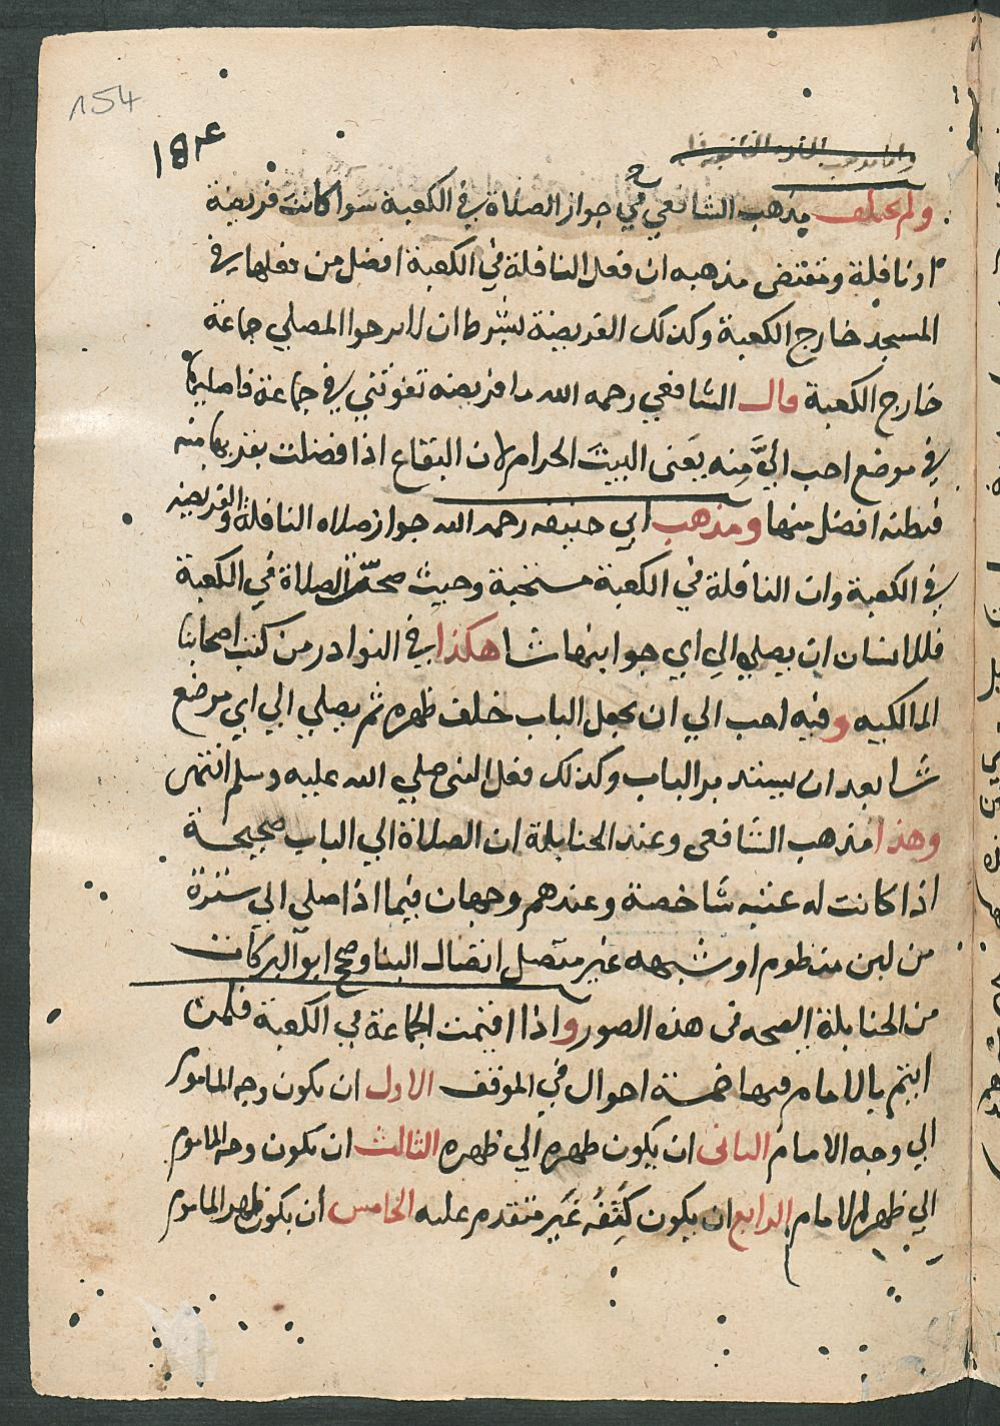 154
ولم يختلف مذهب الشافعي في جواز الصلاة في الكعبة سوا كانت فريضة
او نافلة ومقتضى مذهبه ان فعل النافلة في الكعبة افضل من فعلها في
المسجد خارج الكعبة وكذلك الفريضة بشرط ان لا يرجوا المصلي جماعة
خارج الكعبة قال الشافعي رحمه الله ما فريضه تفوتني في جماعة فاصليها
في موضع احب اليَّ مِنه يعنى البيت الحرام لان البقاع اذا فضلت بقربها منه
فبطنه افضل منها ومذهب ابي حنيفه رحمه الله جواز صلاه النافلة والفريضه
في الكعبة وان النافلة في الكعبة مستحبة وحيث صحّت الصلاة في الكعبة
فللانسان ان يصلي الي اي جوانبها شا هكذا في النوادر من كتب اصحابنا
المالكيه وفيه احب الي ان يجعل الباب خلف ظهره ثم يصلي الي اي موضع
شا بعد ان يستدبر الباب وكذلك فعل النبى صلي الله عليه وسلم انتهى
وهذا مذهب الشافعى وعند الحنابلة ان الصلاة الي الباب صحيحة
اذا كانت له عتبه شاخصة وعندهم وجهان فيما اذا صلي الي سترة
من لبن منظوم او شبهه غير متصل اتصال البنا وصحح ابو البركات
من الحنابلة الصحه فى هذه الصور واذا اقيمت الجماعة في الكعبة فلمن
ايتم بالامام فيها خمسة احوال في الموقف الاول ان يكون وجه الماموم
الي وجه الامام الثانى ان يكون ظهره الي ظهره الثالث ان يكون وجه الماموم
الي ظهر الامام الرابع ان يكون كتفُه غير متقدم عليه الخامس أن يكون ظهر الماموم